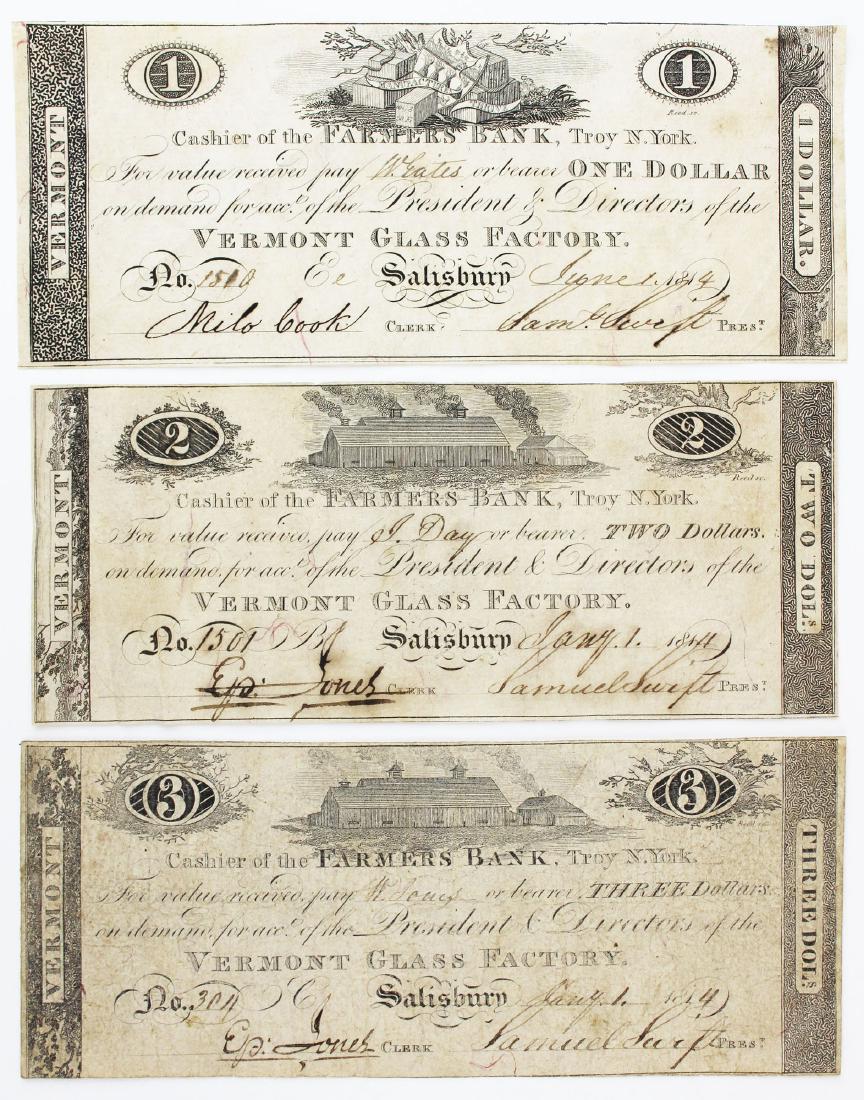 VERMONT
1
1
Reed sc.
1 DOLLAR.
Cashier of the FARMERS BANK, Troy N.York.
For value received pay W. Gates or bearer ONE DOLLAR
on demand for accᵗ. of the President & Directors of the
VERMONT GLASS FACTORY.
No. 1500 Ee Salisbury June 1. 1814
Milo Cook CLERK Samˡ Swift PRESᵀ
VERMONT
2
2
Reed sc.
TWO DOLˢ.
Cashier of the FARMERS BANK, Troy N.York.
For value received, pay J. Day or bearer. TWO Dollars.
on demand, for accᵗ. of the President & Directors of the
VERMONT GLASS FACTORY.
No. 1501 Salisbury Jany. 1. 1814
Ep: Jones CLERK Samuel Swift PRESᵀ
VERMONT
3
3
THREE DOLˢ
Cashier of the FARMERS BANK, Troy N.York.
For value received, pay W. or bearer. THREE Dollars
on demand, for accᵗ. of the President & Directors of the
VERMONT GLASS FACTORY.
No. 304 C Salisbury Jany. 1. 1814
Ep: Jones CLERK Samuel Swift PRESᵀ